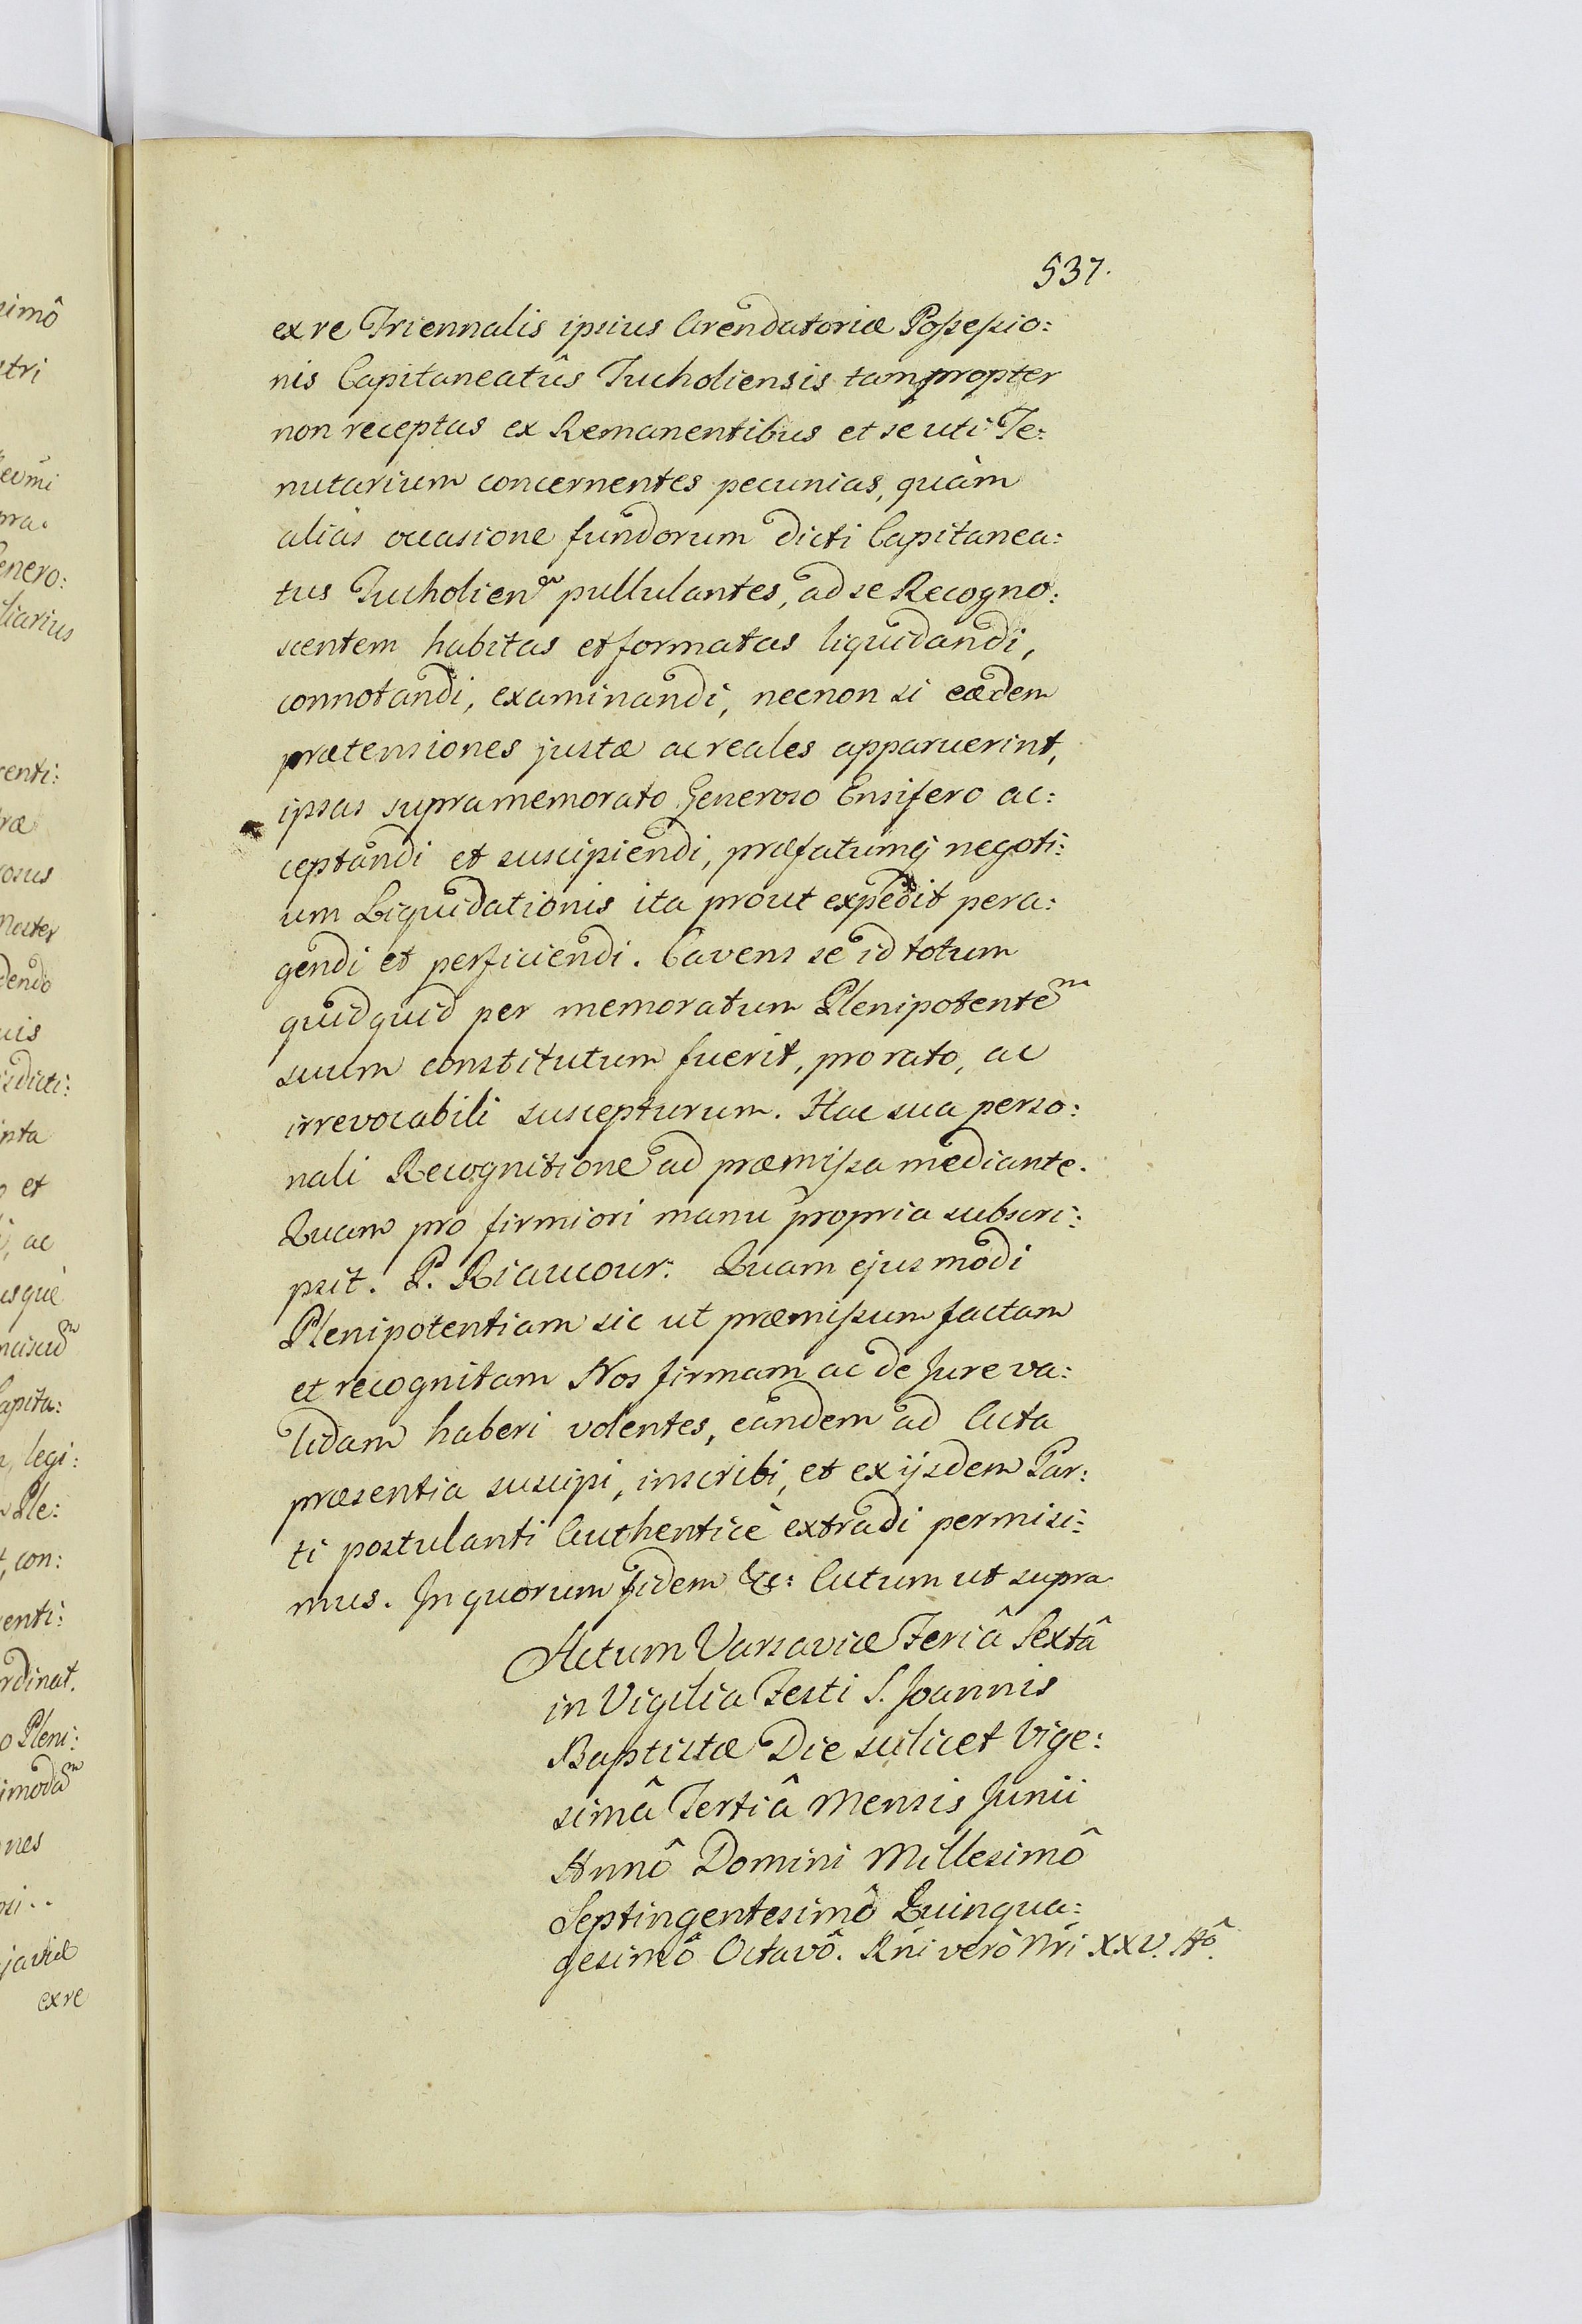 537.
ex re Triennalis ipsius Arendatoriæ Poßeßio:
nis Capitaneatûs Tucholiensis tam propter
non receptas ex Remanentibus et se uti Te:
nutarium concernentes pecunias, quàm
aliàs occasione fundorum dicti Capitanea:
tus Tucholien͂ pullulantes, ad se Recogno:
scentem habitas et formatas liquidandi,
connotandi, examinandi, necnon si eædem
prætensiones justæ ac reales apparuerint,
ipsas supramemorato Generoso Ensifero ac:
ceptandi et suscipiendi, præfatumq́ negoti:
um Liquidationis ita prout expedit pera:
gendi et perficiendi. Cavens se id totum
quidquid per memoratum Plenipotente͂m
suum constitutum fuerit, pro rato, ac
irrevocabili suscepturum. Hac sua perso:
nali Recognitione ad præmißa mediante.
Quam pro firmiori manu propria subscri:
psit. P. Riaucour. Quam ejusmodi
Plenipotentiam sic ut præmißum factam
et recognitam Nos firmam ac de Jure va:
lidam haberi volentes, eandem ad Acta
præsentia suscipi, inscribi, et ex ijsdem Par:
ti postulanti Authenticè extradi permisi:
mus. In quorum fidem &c: Actum ut supra
Actum Varsaviæ Feriâ Sextâ
in Vigilia Festi S. Joannis
Baptistæ Die scilicet Vige:
simâ Tertiâ Mensis Junii
Annô Domini Millesimô
Septingentesimô Quinqua:
gesimô Octavô. Rñi verò Nr̃i XXV. Aô.
simô
stri
enero:
liarius
centi:
ræ
osus
Noster
dendo
uis
isdicti:
o et
, ac
usquè
Capita:
, legi:
Ple:
, con:
enti:
rdinat.
o Pleni:
nes
ex re